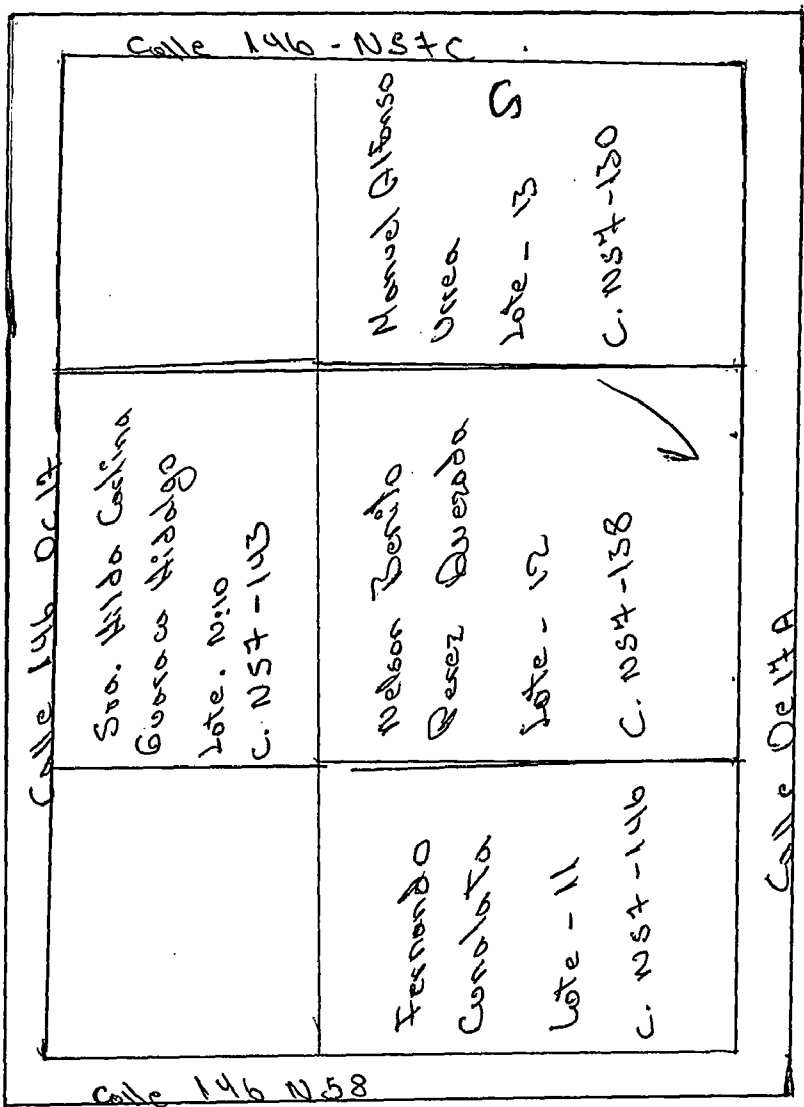 Calle 146 - N57C
Calle 146 Oc 17
Sra. Hilda
Guaraco Hidalgo
Lote. N:10
C. N57-143
Manuel Alfonso
Urrea
Lote - 13
C. N57-130
S
Nelson Benito
Perez Quezada
Lote - 12
C. N57-138
Fernando
Cunalata
Lote - 11
C. N57-146
Calle Oc 17A
Calle 146 N58